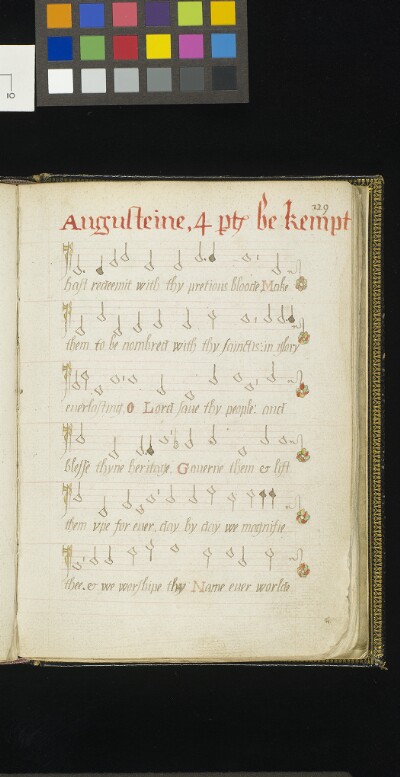 129
Augusteine, 4 pt be kempt
hast redeemit with thy pretious bloode Make
them to be nombred with thy sainctis: in glory
everlasting. O Lord saue thy people: and
blesse thyne heritage. Gouerne them & lift
them vpe for euer. day by day we magnifie
thee. & we worshipe thy Name euer worlde
10